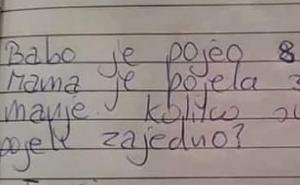 Babo je pojeo 8
Mama je pojela 3
manje. Koliko su
pojeli zajedno?